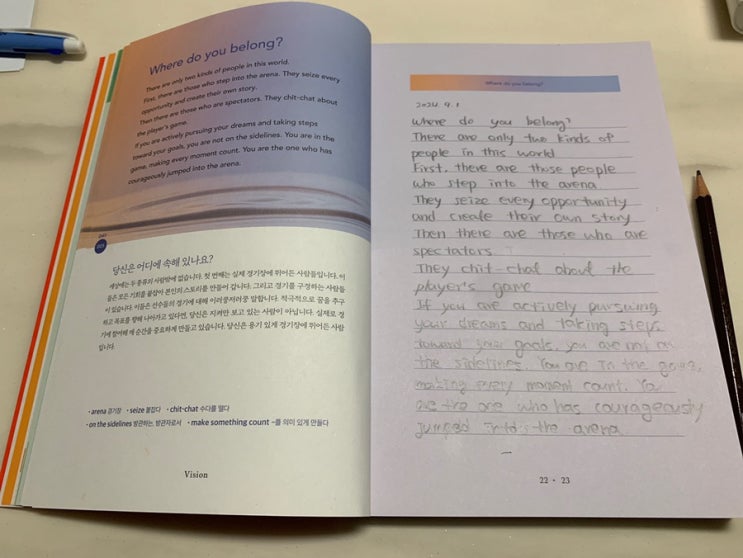 Where do you belong?
There are only two kinds of people in this world.
First, there are those who step into the arena. They seize every
opportunity and create their own story.
Then there are those who are spectators. They chit-chat about
the player's game.
If you are actively pursuing your dreams and taking steps
toward your goals, you are not on the sidelines. You are in the
game, making every moment count. You are the one who has
courageously jumped into the arena.
당신은 어디에 속해 있나요?
세상에는 두 종류의 사람밖에 없습니다. 첫 번째는 실제 경기장에 뛰어든 사람들입니다. 이
들은 모든 기회를 붙잡아 본인의 스토리를 만들어 갑니다. 그리고 경기를 구경하는 사람들
이 있습니다. 이들은 선수들의 경기에 대해 이러쿵저러쿵 말합니다. 적극적으로 꿈을 추구
하고 목표를 향해 나아가고 있다면, 당신은 지켜만 보고 있는 사람이 아닙니다. 실제로 경
기에 참여해 매 순간을 중요하게 만들고 있습니다. 당신은 용기 있게 경기장에 뛰어든 사람
입니다.
• arena 경기장 • seize 붙잡다 • chit-chat 수다를 떨다
• on the sidelines 방관하는, 방관자로서 • make something count ~를 의미 있게 만들다
Vision
Where do you belong?
2024. 9. 1
Where do you belong?
There are only two kinds of
people in this world
First, there are those people
who step into the arena
They seize every opportunity
and create their own story
Then there are those who are
spectators
They chit-chat about the
player's game
If you are actively pursuing
your dreams and taking steps
toward your goals, you are not on
the sidelines. You are in the game,
making every moment count. You
are the one who has courageously
jumped into the arena
22 • 23